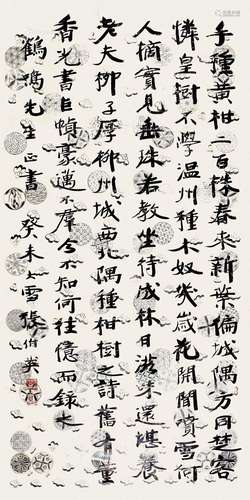 手種黃柑二百株春來新葉徧城隅方同楚客
憐皇樹不學温州種木奴幾歲花開聞噴雪何
人摘實見垂珠若教坐待成林日滋味還堪養
老夫柳子厚柳州城西北隅種柑樹之詩舊有董
香光書巨幀豪邁不羣今不知何往憶而録之
鶴鳴先生正書 癸未大雪張伯英